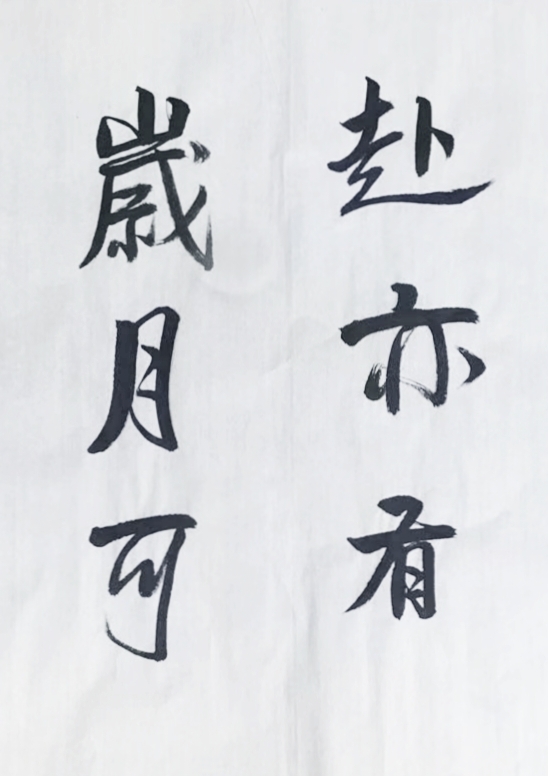 赴亦有
歳月可